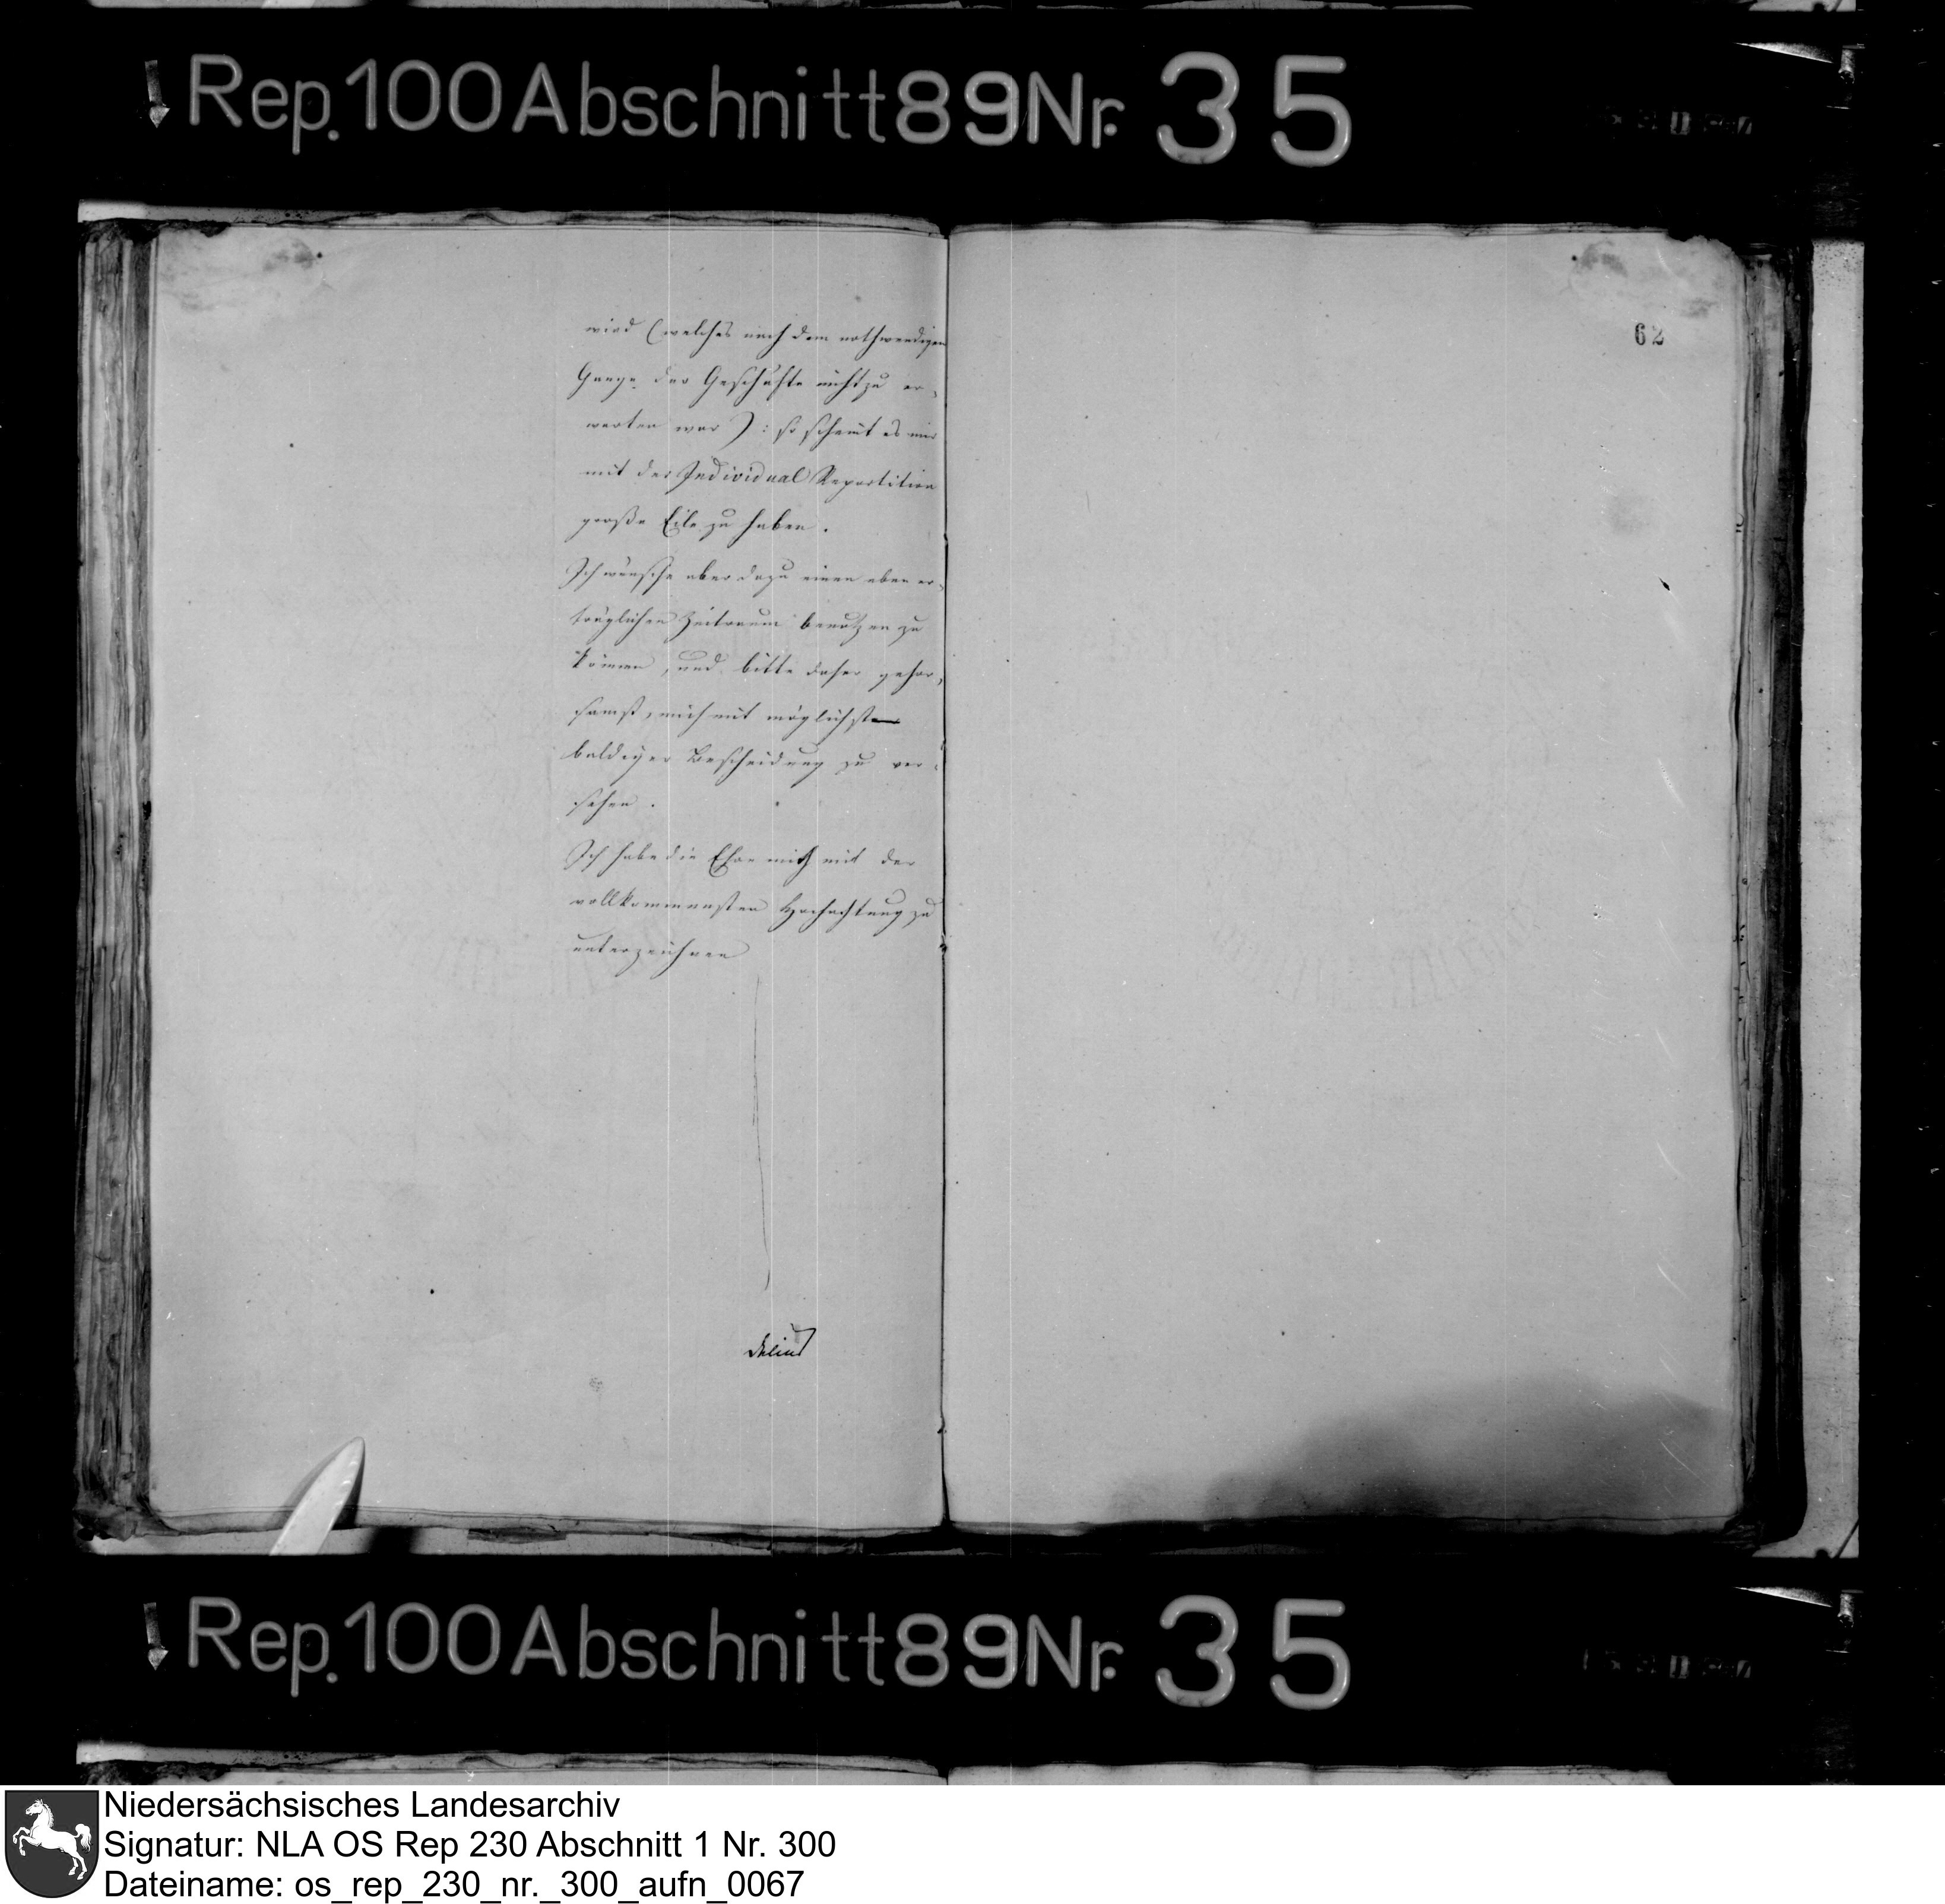 Rep. 100 Abschnitt 89 Nr. 35
wird (welches nach dem nothwendigen
Gange der Geschäfte nicht zu er-
warten war): so scheint es mir
mit der Individual Repartition
große Eile zu haben.
Ich wünsche aber dazu einen eben er-
träglichen Zeitraum benutzen zu
können, und bitte daher gehor-
samst, mich mit möglichst
baldiger Bescheidung zu ver-
sehen.
Ich habe die Ehre mich mit der
vollkommensten Hochachtung zu
unterzeichnen
Delius
62
Rep. 100 Abschnitt 89 Nr. 35
Niedersächsisches Landesarchiv
Signatur: NLA OS Rep 230 Abschnitt 1 Nr. 300
Dateiname: os_rep_230_nr._300_aufn_0067